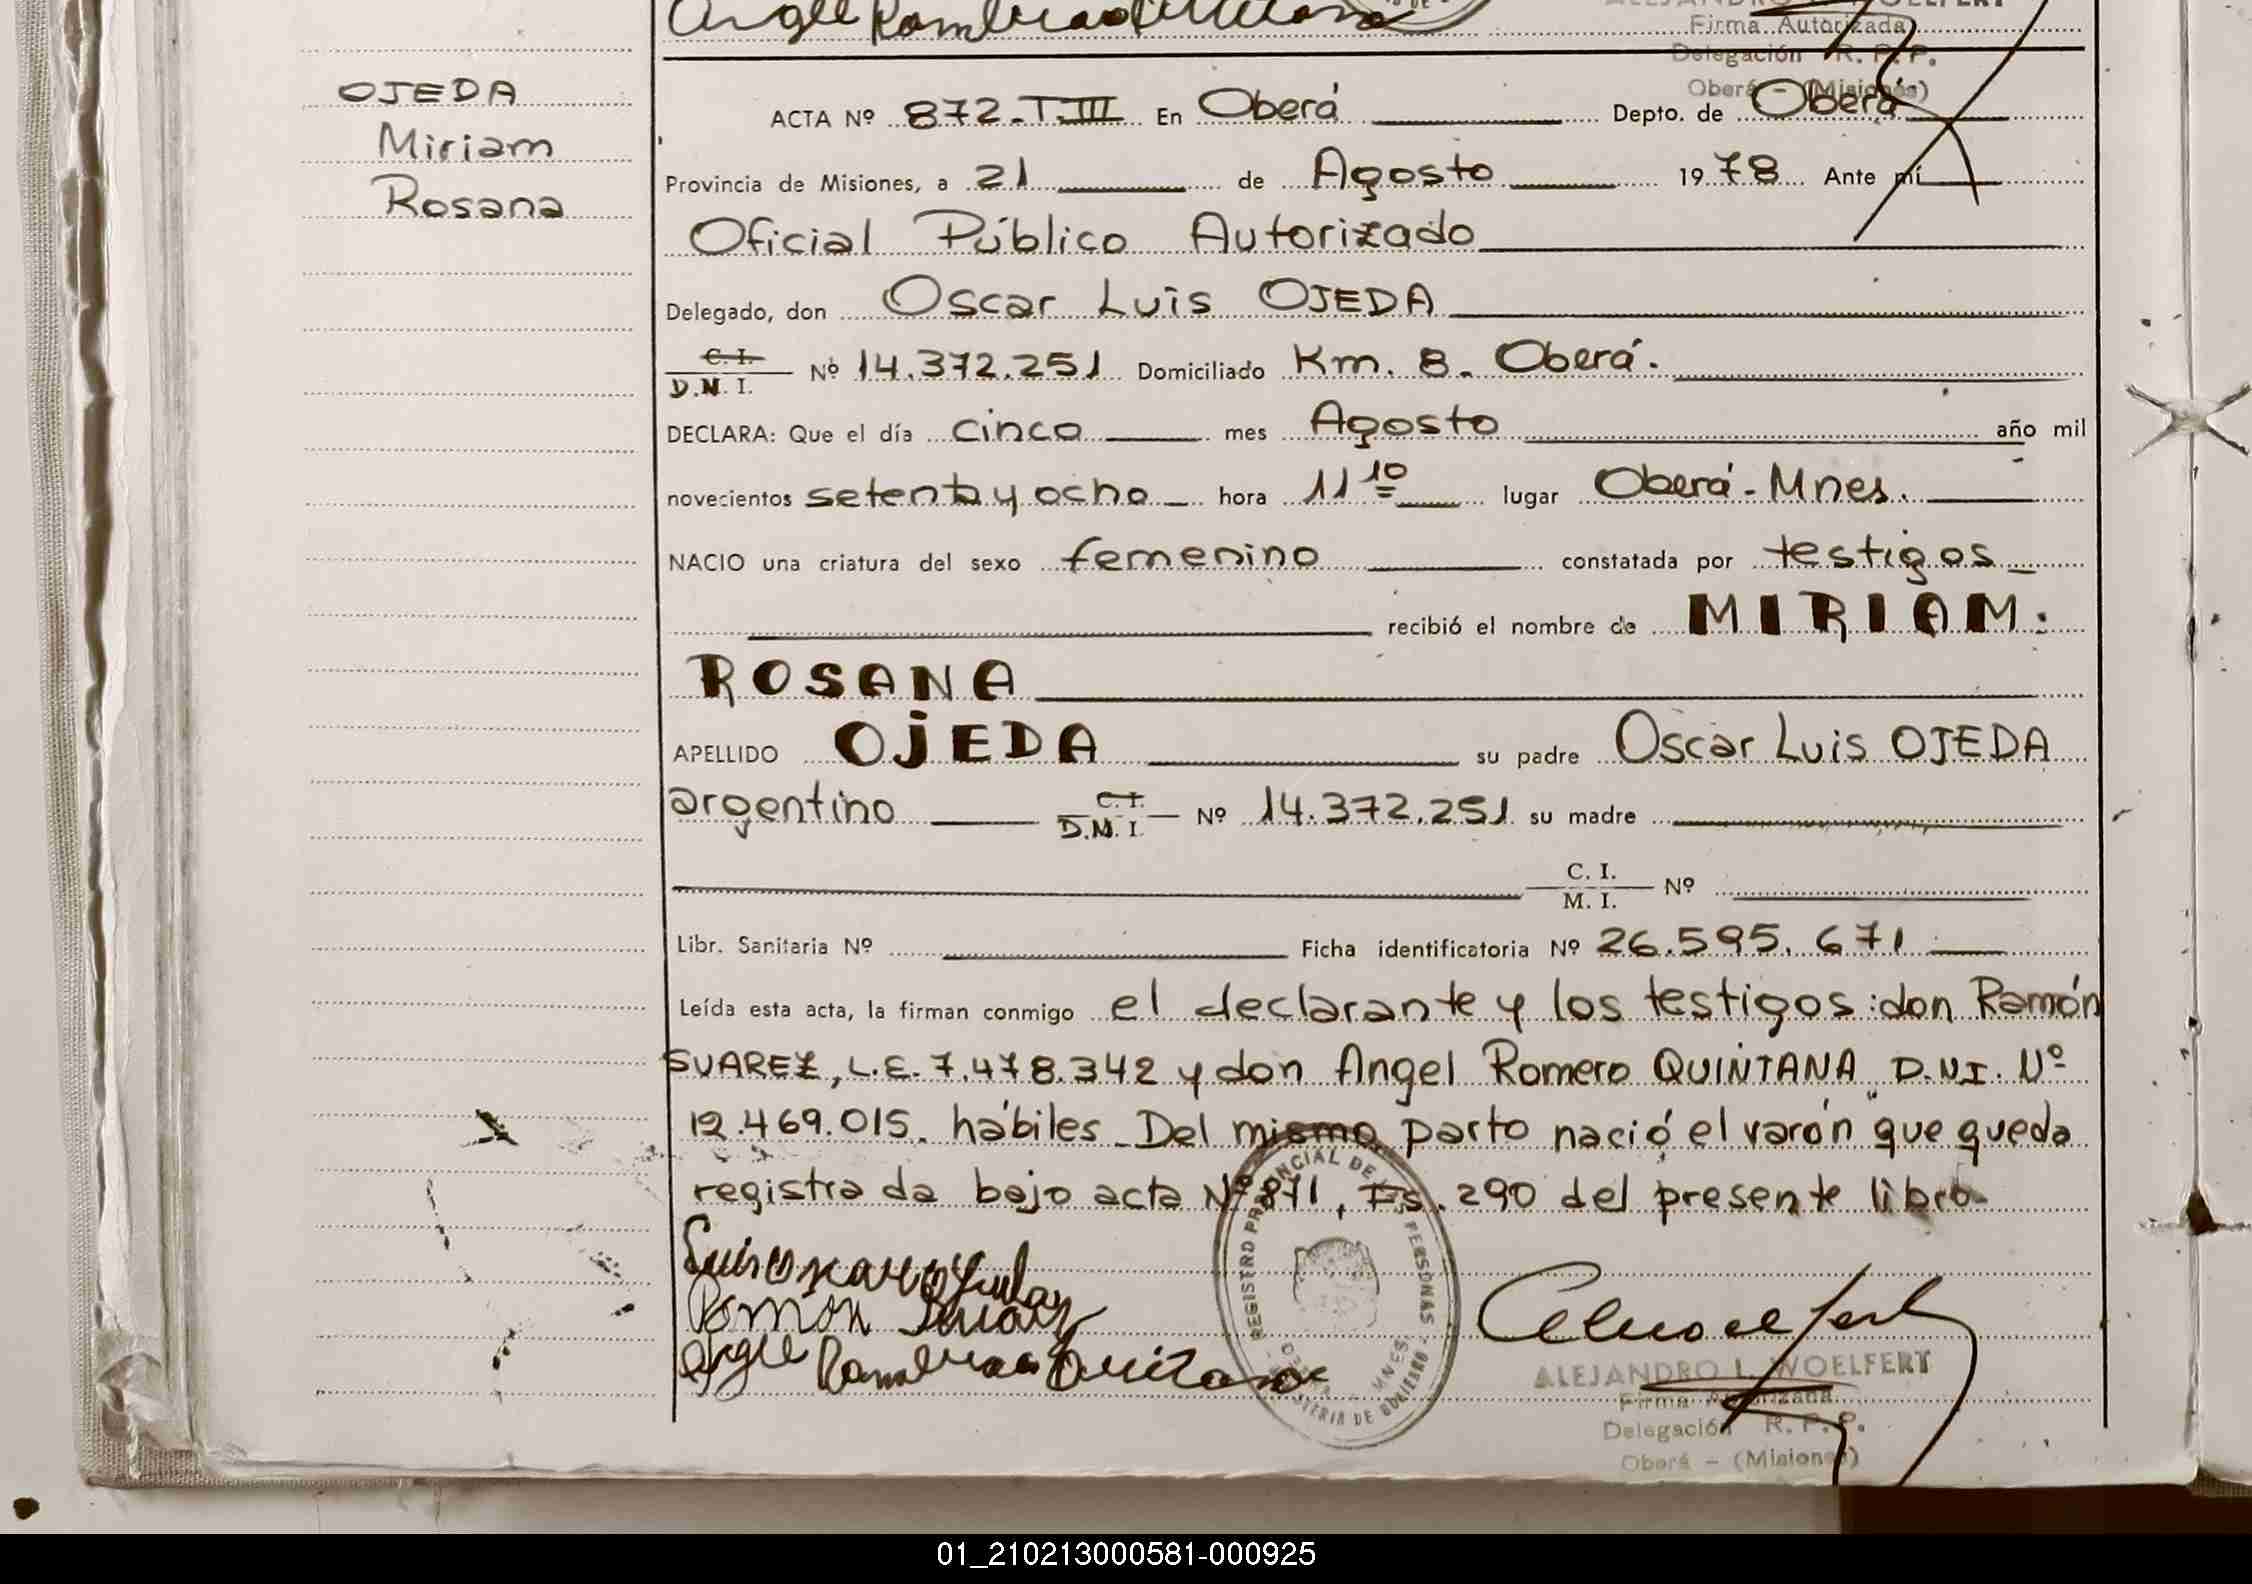 ALEJANDRO L. WOELFERT
Firma Autorizada
Delegación R. P. P.
Oberá - (Misiones)
OJEDA
Miriam
Rosana
ACTA Nº 872-T.III En Oberá Depto. de Oberá
Provincia de Misiones, a 21 de Agosto 1978 Ante mí
Oficial Público Autorizado
Delegado, don Oscar Luis OJEDA
C. I.
D.N. I. Nº 14.372.251 Domiciliado Km. 8. Oberá.
DECLARA: Que el día cinco mes Agosto año mil
novecientos setenta y ocho hora 11 10 lugar Oberá - Mnes.
NACIO una criatura del sexo femenino constatada por testigos
recibió el nombre de MIRIAM
ROSANA
APELLIDO OJEDA su padre Oscar Luis OJEDA
argentino C. I. D.N. I. Nº 14.372.251 su madre
C. I.
M. I. Nº
Libr. Sanitaria Nº Ficha identificatoria Nº 26.595.671
Leída esta acta, la firman conmigo el declarante y los testigos: don Ramón
SUAREZ, L.E. 7.478.342 y don Angel Romero QUINTANA D.N.I. Nº
12.469.015. hábiles. Del mismo parto nació el varón que queda
registrada bajo acta Nº 871, Fs. 290 del presente libro.
Ramón Suarez
REGISTRO PROVINCIAL DE LAS PERSONAS
MINISTERIO DE GOBIERNO
ALEJANDRO L. WOELFERT
Firma Autorizada
Delegación R. P. P.
Oberá - (Misiones)
01_210213000581-000925